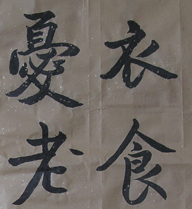 衣食
憂老